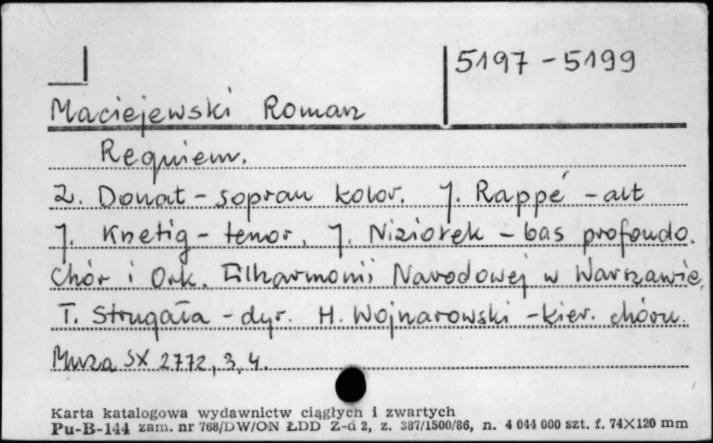 5197 - 5199
Maciejewski Roman
Requiem.
Z. Donat - sopran kolor. J. Rappé - alt
J. Knetig - tenor, J. Niziołek - bas profondo.
Chór i Ork. Filharmonii Narodowej w Warszawie,
T. Strugała - dyr. H. Wojnarowski - kier. chóru.
Muza SX 2772, 3, 4.
Karta katalogowa wydawnictw ciągłych i zwartych
Pu-B-144 zam. nr 768/DW/ON ŁDD Z-d 2, z. 387/1500/86, n. 4 044 000 szt. f. 74×120 mm